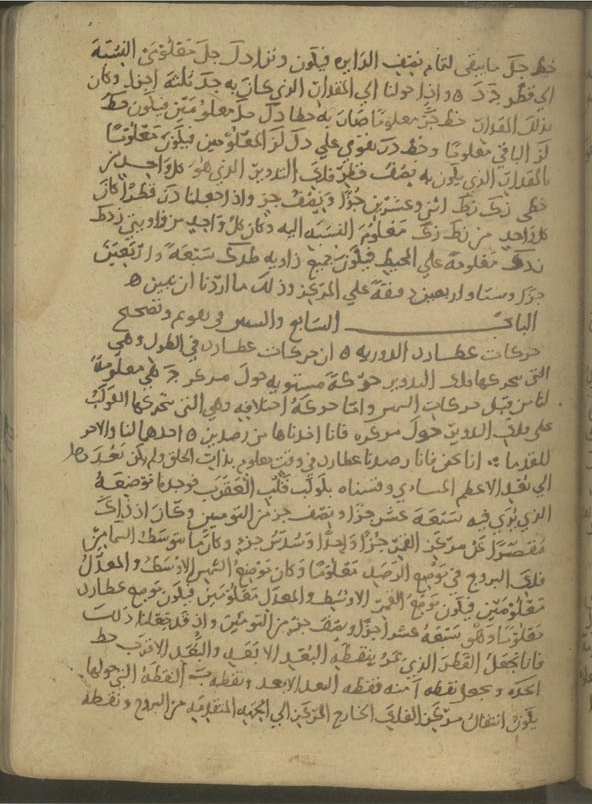 خط جل ما يبقى لتمام نصف الدايره فيكون وتر دل جل معلومى النسبة
الى قطر جد ه واذا حولنا الى المقدار الذي كان به جد ثلثة اجزا وكان
بذلك المقدار خط جز معلوما صار به خطا دل جل معلومين فيكون خط
لز الباقي معلوما وخط دز يقوى على دل لز المعلومين فيكون معلوما
بالمقدار الذي يكون به نصف قطر فلك التدوير الذي هو كل واحد من
خطي زك زط اثنين وعشرين جزا ونصف جز واذا جعلنا دز قطرا كان
كل واحد من زط زك معلوم النسبه اليه وكان كل واحد من زاويتي زدط
زدك معلومة على المحيط فيكون جميع زاويه طدك سبعة واربعين
جزا وستا واربعين دقيقة على المركز وذلك ما اردنا ان نبين ه
الباب السابع والسبعون في تقويم وتصحيح
حركات عطارد الدوريه ه ان حركات عطارد في الطول وهي
التي يتحركها فلك التدوير حركة مستويه حول مركز ج هي معلومة
لنا من قبل حركات الشمس واما حركة اختلافه وهي التي يتحركها الكوكب
على فلك التدوير حول مركزه فانا اخذناها من رصدين ه احدهما لنا والاخر
للقدما ه اما نحن فانا رصدنا عطارد في وقت معلوم بذات الحلق ولم يكن بعد
الى بعده الاعظم المسايي وقسناه بكوكب قلب العقرب فوجدنا موضعه
الذي يرى فيه سبعة عشر جزا ونصف جز من التومين وكان اذ ذاك
مقصرا عن مركز القمر جزا واحدا وسدس جزء وكان ما يتوسط السما من
فلك البروج في موضع الرصد معلوما وكان موضع الشمس الاوسط والمعدل
معلومين فيكون موضع القمر الاوسط والمعدل معلومين فيكون موضع عطارد
معلوما وهو سبعة عشر جزا ونصف جز من التومين واذ قد جعلنا ذلك
فانا نجعل القطر الذي يمر بنقطه البعد الابعد والبعد الاقرب خط
ابجده ونجعل نقطه آ منه نقطه البعد الابعد ونقطه ب النقطة التي حولها
يكون انتقال مركز الفلك الخارج المركز الى الجهه المتقدمه من البروج ونقطه